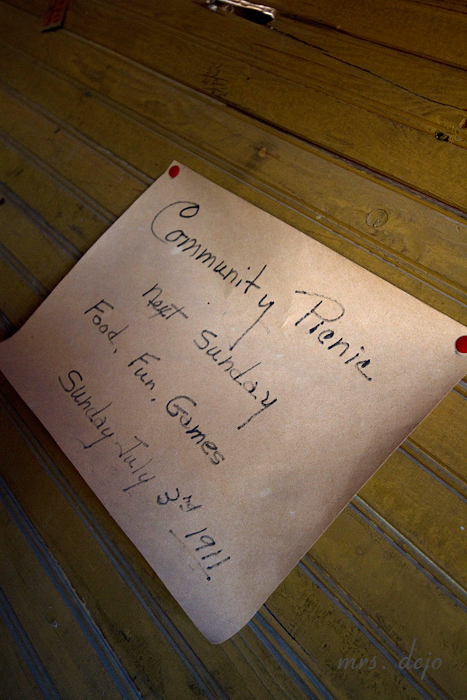 Community Picnic
next Sunday
Food, Fun, Games
Sunday July 3rd 1911.
mrs. dejo